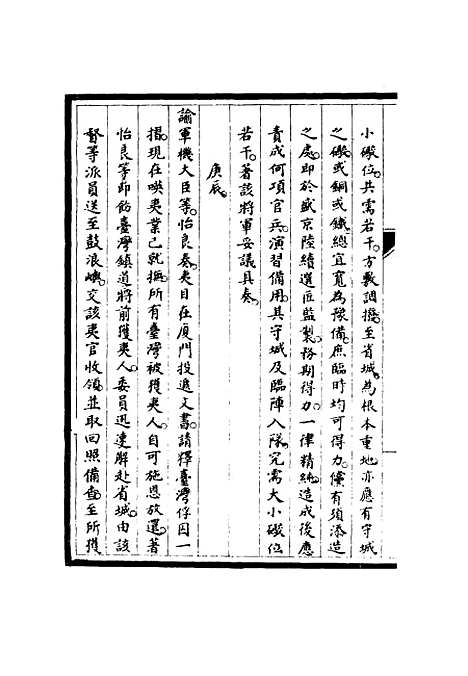 小礮位。共需若干。方敷調撥。至省城為根本重地。亦應有守城
之礮。或銅或鐵。總宜寬為豫備。庶臨時均可得力。儻有須添造
之處。即於盛京陸續選匠監製。務期得力。一律精純。造成後應
責成何項官兵。演習備用。其守城及臨陣入隊。究需大小礮位
若干。著該將軍妥議具奏。
庚辰。
諭軍機大臣等。怡良奏。夷目在廈門投遞文書。請釋臺灣俘囚一
摺。現在㗸夷業已就撫。所有臺灣被獲夷人。自可施恩放還。著
怡良等即飭臺灣鎮道將前獲夷人。委員迅速解赴省城。由該
督等派員送至鼓浪嶼。交該夷官收領。並取回照備查。至所獲